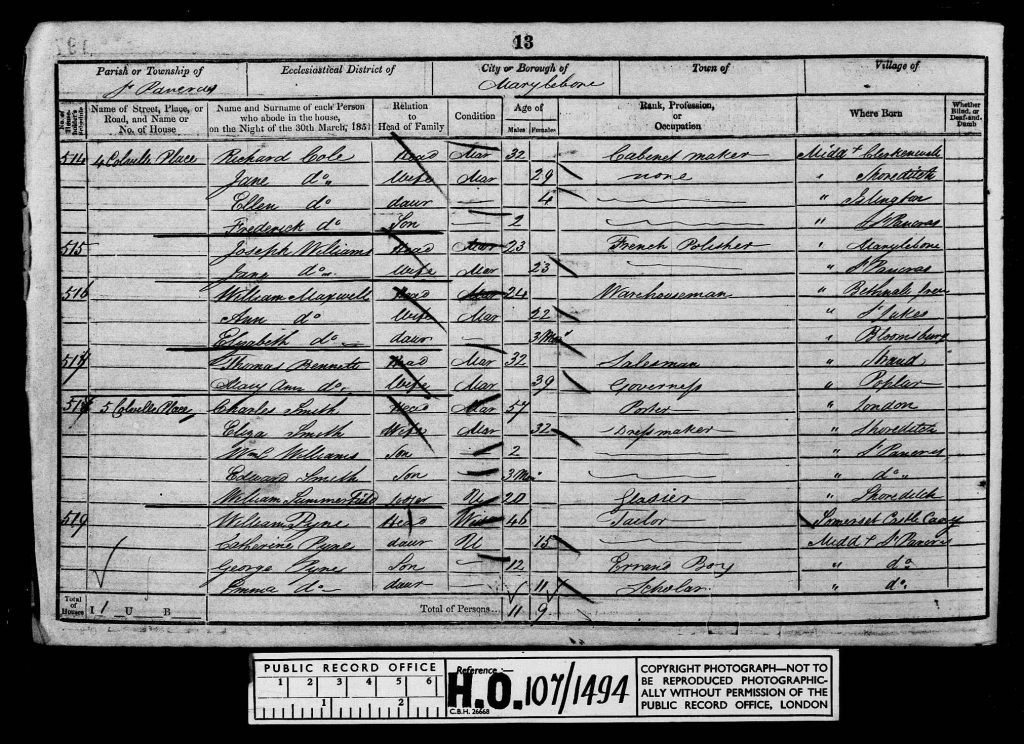 13
Parish or Township of Ecclesiastical District of City or Borough of Town of Village of
St Pancras Marylebone
No. of House-holder's Schedule Name of Street, Place, or Road, and Name or No. of House Name and Surname of each Person who abode in the house, on the Night of the 30th March, 1851 Relation to Head of Family Condition Age of Males Females Rank, Profession, or Occupation Where Born Whether Blind, or Deaf-and-Dumb
514 4 Colville Place Richard Cole Head Mar 32 Cabinet maker Middx Clerkenwell
Jane do Wife Mar 29 none " Shoreditch
Ellen do daur 4 " Islington
Frederick do Son 2 " St Pancras
515 Joseph Williams Head Mar 23 French Polisher " Marylebone
Jane do Wife Mar 23 " St Pancras
516 William Maxwell Head Mar 24 Warehouseman " Bethnal Green
Ann do Wife Mar 22 " St Lukes
Elizabeth do daur 3 Mo " Bloomsbury
517 Thomas Bennett Head Mar 32 Salesman " Strand
Mary Ann do Wife Mar 39 Governess " Poplar
518 5 Colville Place Charles Smith Head Mar 57 Porter " London
Eliza Smith Wife Mar 32 Dressmaker " Shoreditch
Wm Williams Son 2 " St Pancras
Edward Smith Son 3 Mo " do
William Summerfield U 20 Glasier " Shoreditch
519 William Pyne Head Wid 46 Tailor Somerset Castle Cary
Catherine Pyne daur U 15 Midd x St Pancras
George Pyne Son 12 Errand Boy " do
Emma do daur 11 Scholar " do
Total of Houses I 1 U B Total of Persons 11 9
PUBLIC RECORD OFFICE
1 2 3 4 5 6
1 2
Reference:-
H.O. 107/1494
C.B.H. 26668
COPYRIGHT PHOTOGRAPH—NOT TO
BE REPRODUCED PHOTOGRAPHIC-
ALLY WITHOUT PERMISSION OF THE
PUBLIC RECORD OFFICE, LONDON